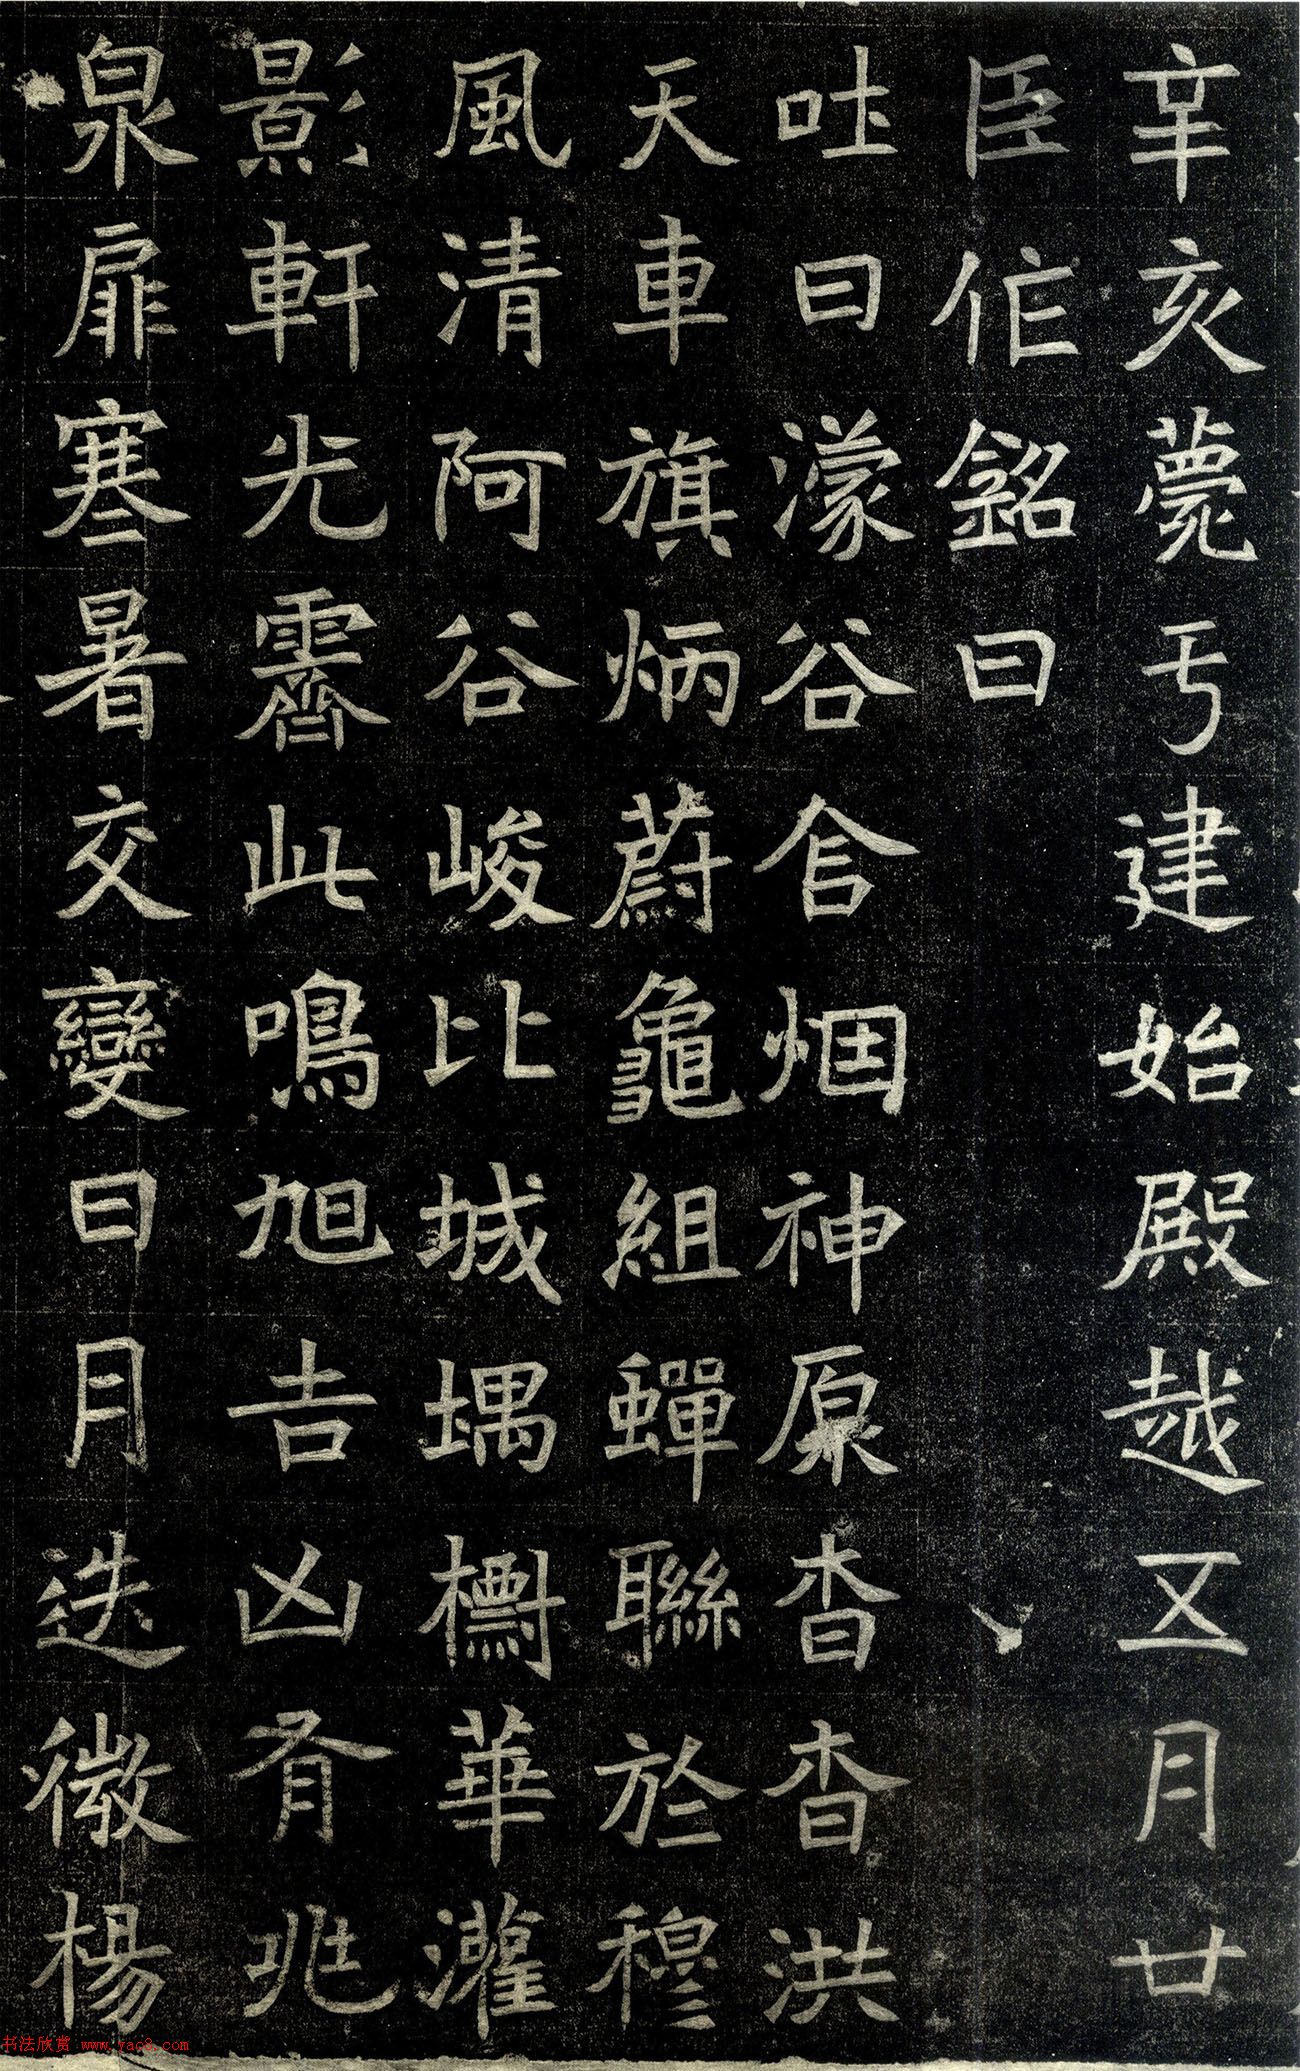 辛亥薨亏建始殿越五月廿
臣作銘曰
吐日濛谷含烟神原杳杳洪
天車旗炳蔚龜組蟬聯於穆
風清阿谷峻比城堣華濯
影軒光霽此鳴旭吉凶有兆
泉扉寒暑交變日月迭微楊
书法欣赏 www.yac8.com